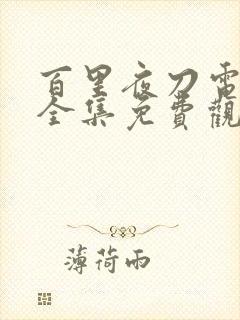 百里夜刀電
全集免費觀
薄荷雨